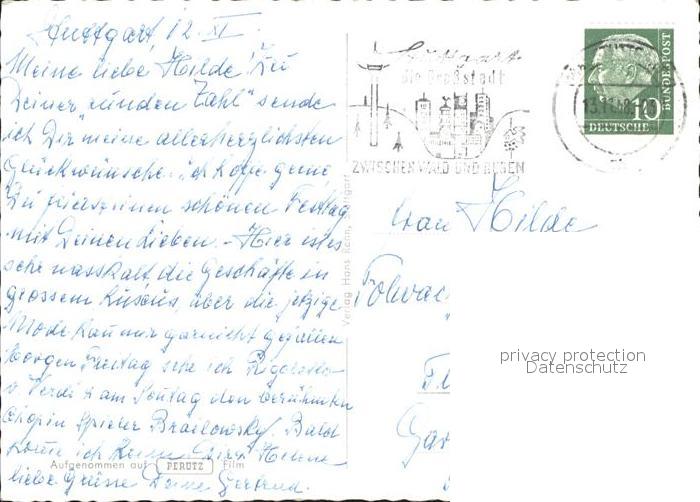 Stuttgart, 12. XI.
Meine liebe Hilde! Zu
Deiner „runden Zahl" sende
ich Dir meine allerherzlichsten
Glückwünsche. ich hoffe gerne
Du feierst einen schönen Festtag
mit Deinen Lieben. - Hier ist es
sehr nasskalt, die Geschäfte in
grossem Luxus, aber die jetzige
Mode kann mir garnicht gefallen
Morgen Freitag sehe ich Rigoretto
v. Verdi & am Sontag den berühmten
Chopin Spieler Brailowsky. Bald
komme ich heim
liebe Grüsse Deine Gertrud.
Aufgenommen auf PERUTZ Film
Verlag Hans
Stuttgart
die Großstadt
ZWISCHEN WALD UND REBEN
13.11.
10
DEUTSCHE
BUNDESPOST
Frau Hilde
privacy protection
Datenschutz